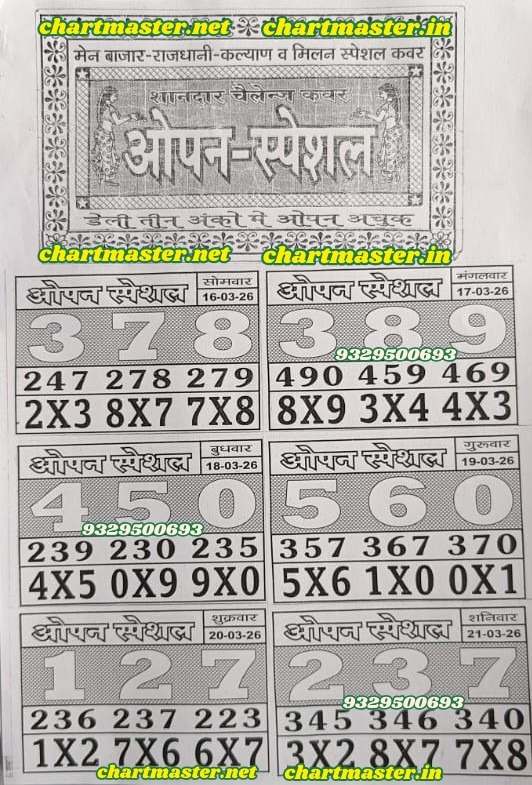 chartmaster.net chartmaster.in
मेन बाजार-राजधानी-कल्याण व मिलन स्पेशल कवर
शानदार चैलेन्ज कवर
ओपन-स्पेशल
डेली तीन अंको मे ओपन अचुक
chartmaster.net chartmaster.in
ओपन स्पेशल सोमवार 16-03-26
3 7 8
247 278 279
2X3 8X7 7X8
ओपन स्पेशल मंगलवार 17-03-26
3 8 9
9329500693
490 459 469
8X9 3X4 4X3
ओपन स्पेशल बुधवार 18-03-26
4 5 0
9329500693
239 230 235
4X5 0X9 9X0
ओपन स्पेशल गुरूवार 19-03-26
5 6 0
357 367 370
5X6 1X0 0X1
ओपन स्पेशल शुक्रवार 20-03-26
1 2 7
236 237 223
1X2 7X6 6X7
ओपन स्पेशल शनिवार 21-03-26
2 3 7
9329500693
345 346 340
3X2 8X7 7X8
chartmaster.net chartmaster.in